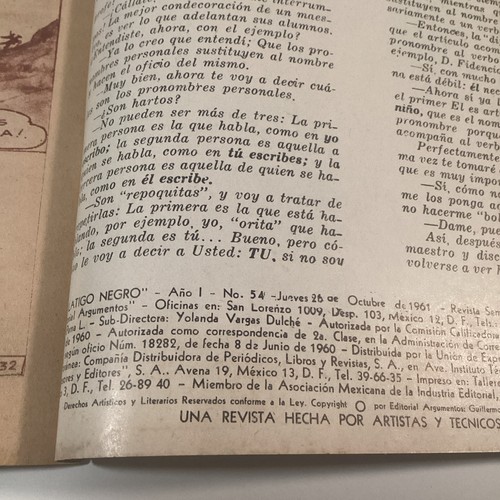 ¡La mejor condecoración de un maes-
es ver lo que adelantan sus alumnos.
ntendiste, ahora, con el ejemplo?
—Ya lo creo que entendí; Que los pro-
nombres personales sustituyen al nombre
hacen el oficio del mismo.
—Muy bien, ahora te voy a decir cuá-
s son los pronombres personales.
—¿Son hartos?
—No pueden ser más de tres: La pri-
era persona es la que habla, como en yo
scribo; la segunda persona es aquella a
uien se habla, como en tú escribes; y la
rcera persona es aquella de quien se ha-
la, como en él escribe.
—Son "repoquitas", y voy a tratar de
epetirlas: La primera es la que está ha-
lando, por ejemplo, yo, "orita" que ha-
la; la segunda es tú... Bueno, pero có-
o le voy a decir a Usted: TU, si no soy
mientras
sariamente a un verb
—Entonces, la "di
que el artículo acom
pronombre al verbo
ejemplo, D. Fidenci
—Sí, con mucho
na está débil: él nec
—Ahora sí ya
el primer El es art
niño, que es el nom
pronombre porqu
acompaña al verb
Perfectamente
ma vez te tomaré
que es muy impo
—Sí, cómo no
me los ponga a
no hacerme "bo
—Dame, pue
Así, después
maestro y disc
volverse a ver
A!.
32
ATIGO NEGRO" - Año I - No. 54 - Jueves 26 de Octubre de 1961 - Revista Sem
al Argumentos" - Oficinas en: San Lorenzo 1009, Desp. 103, México 12, D. F., Tel.
L. - Sub-Directora: Yolanda Vargas Dulché - Autorizada por la Comisión Calificadora
de 1960 - Autorizada como correspondencia de 2a. Clase, en la Administración de Corre
según oficio Núm. 18282, de fecha 8 de Junio de 1960 - Distribuida por la Unión de Expe
Compañía Distribuidora de Periódicos, Libros y Revistas, S. A., en Ave. Instituto Té
ores y Editores", S. A., Avena 19, México 13, D. F., Tel. 39-66-35 - Impreso en: Taller
3, D. F., Tel. 26-89 40 - Miembro de la Asociación Mexicana de la Industria Editorial,
Derechos Artísticos y Literarios Reservados conforme a la Ley. Copyright © por Editorial Argumentos: Guillermo
UNA REVISTA HECHA POR ARTISTAS Y TECNICOS